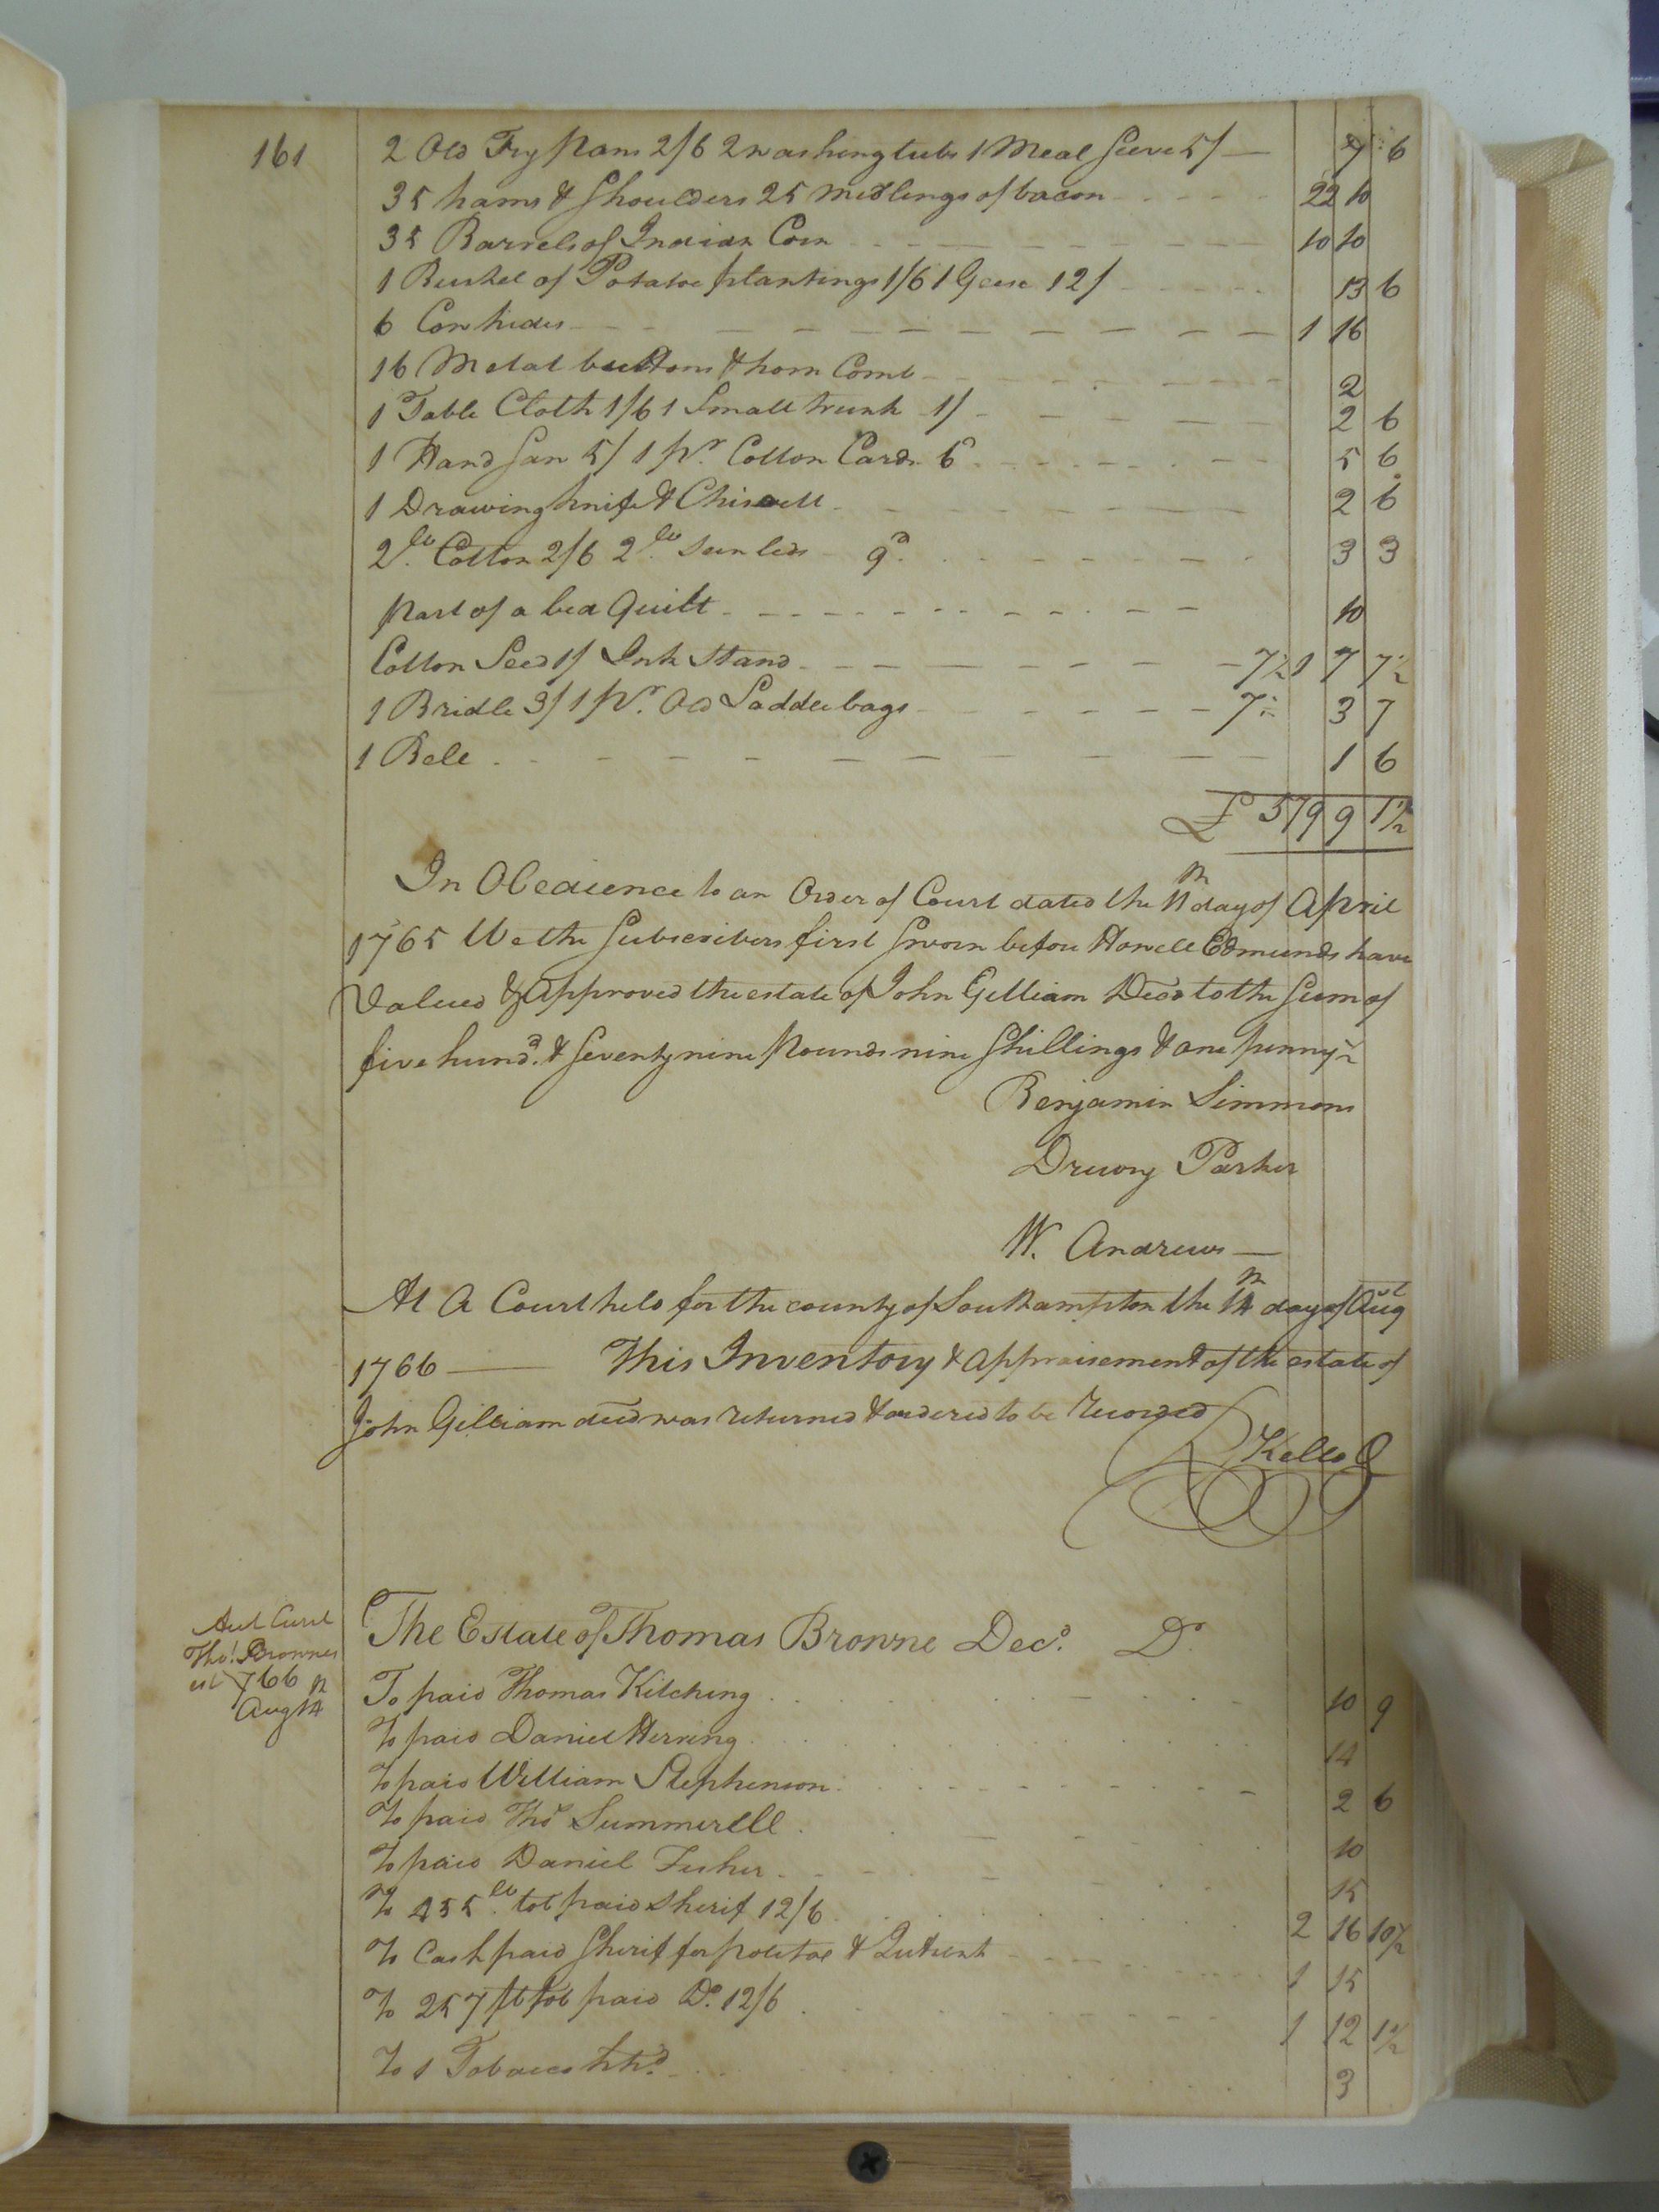 161
2 Old Fry pans 2/6 2 washing tubs 1 Meal Seive 5/ — 7 6
35 hams & Shoulders 25 midlings of bacon 22 10
35 Barrels of Indian Corn 10 10
1 Bushel of Potatoe plantings 1/6 1 Geese 12/ 13 6
6 Cow hides 1 16
16 Metal buttons & horn Comb 2
1 Table Cloth 1/6 1 Small trunk 1/ 2 6
1 Hand Saw 5/ 1 pr. Cotton Cards 6d 5 6
1 Drawing knife & Chissell 2 6
2 lb. Cotton 2/6 2 lb. 9d. 3 3
part of a bed Quilt 10
Cotton Seed 1/ Ink Stand 7½ 1 7 7½
1 Bridle 3/ 1 pr. Old Saddle bags 7½ 3 7
1 Bell 1 6
£ 579 9 1½
In Obedience to an Order of Court dated the 11th day of April
1765 We the Subscribers first Sworn before Howell Edmunds have
Valued & Approved the estate of John Gilliam Decd to the Sum of
five hundd. & Seventy nine pounds nine Shillings & one penny ½
Benjamin Simmons
Drewry Parker
W. Andrews —
At A Court held for the county of Southampton the 14th day of Augt
1766 — This Inventory & Appraisement of the estate of
John Gilliam decd was returned & ordered to be recorded
R Kello
Thos. Brownes
1766
Aug 14th
The Estate of Thomas Browne Decd. Dr
To paid Thomas Kitching 10 9
To paid Daniel Herring 14
To paid William Stephenson 2 6
To paid Thos Summerell 10
To paid Daniel Fisher 15
To 455 lb. tob paid Sherif 12/6 2 16 10½
To Cash paid Sherif for & Quitrent 1 15
To 257 lb tob paid Do. 12/6 1 12 1½
To 1 Tobacco hhd. 3